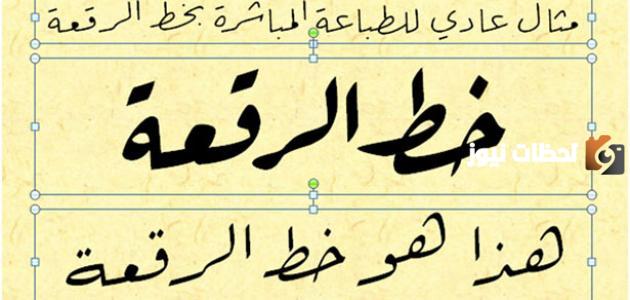 مثال عادي للطباعة المباشرة بخط الرقعة
خط الرقعة
لحظات نيوز
هذا هو خط الرقعة